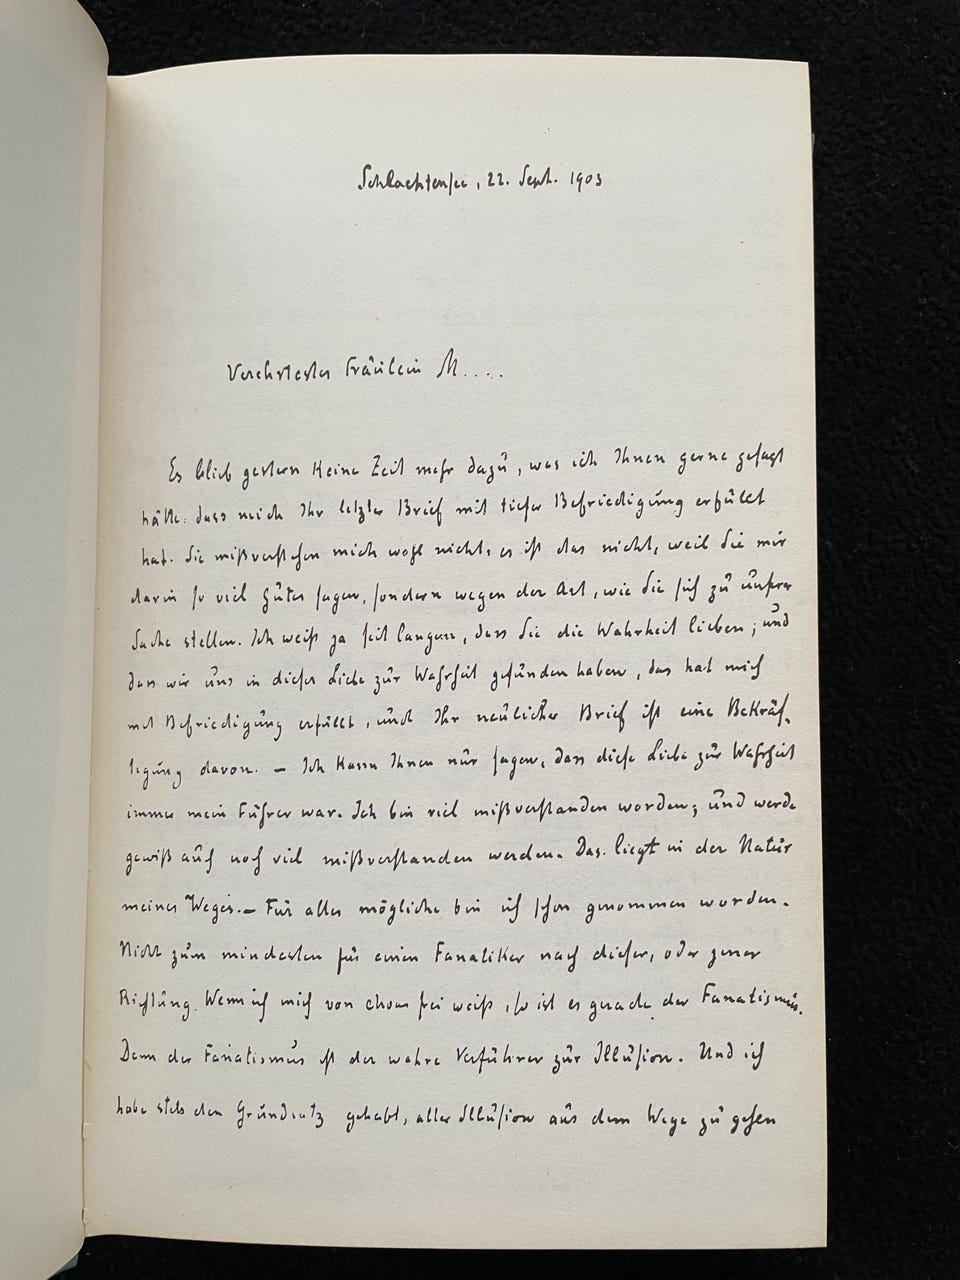 Schlachtensee, 22. Sept. 1903
Verehrtestes Fräulein M....
Es blieb gestern keine Zeit mehr dazu, was ich Ihnen gerne gesagt
hätte: dass mich Ihr letzter Brief mit tiefer Befriedigung erfüllt
hat. Sie mißverstehen mich wohl nicht: es ist das nicht, weil Sie mir
darin so viel Gutes sagen, sondern wegen der Art, wie Sie sich zu unsrer
Sache stellen. Ich weiß ja seit langem, dass Sie die Wahrheit lieben; und
dass wir uns in dieser Liebe zur Wahrheit gefunden haben, das hat mich
mit Befriedigung erfüllt, und Ihr neulicher Brief ist eine Bekräf-
tigung davon. – Ich kann Ihnen nur sagen, dass diese Liebe zur Wahrheit
immer mein Führer war. Ich bin viel mißverstanden worden; und werde
gewiß auch noch viel mißverstanden werden. Das liegt in der Natur
meines Weges. – Für alles mögliche bin ich schon genommen worden.
Nicht zum mindesten für einen Fanatiker nach dieser, oder jener
Richtung. Wenn ich mich von etwas frei weiß, so ist es gerade der Fanatismus.
Denn der Fanatismus ist der wahre Verführer zur Illusion. Und ich
habe stets den Grundsatz gehabt, aller Illusion aus dem Wege zu gehen